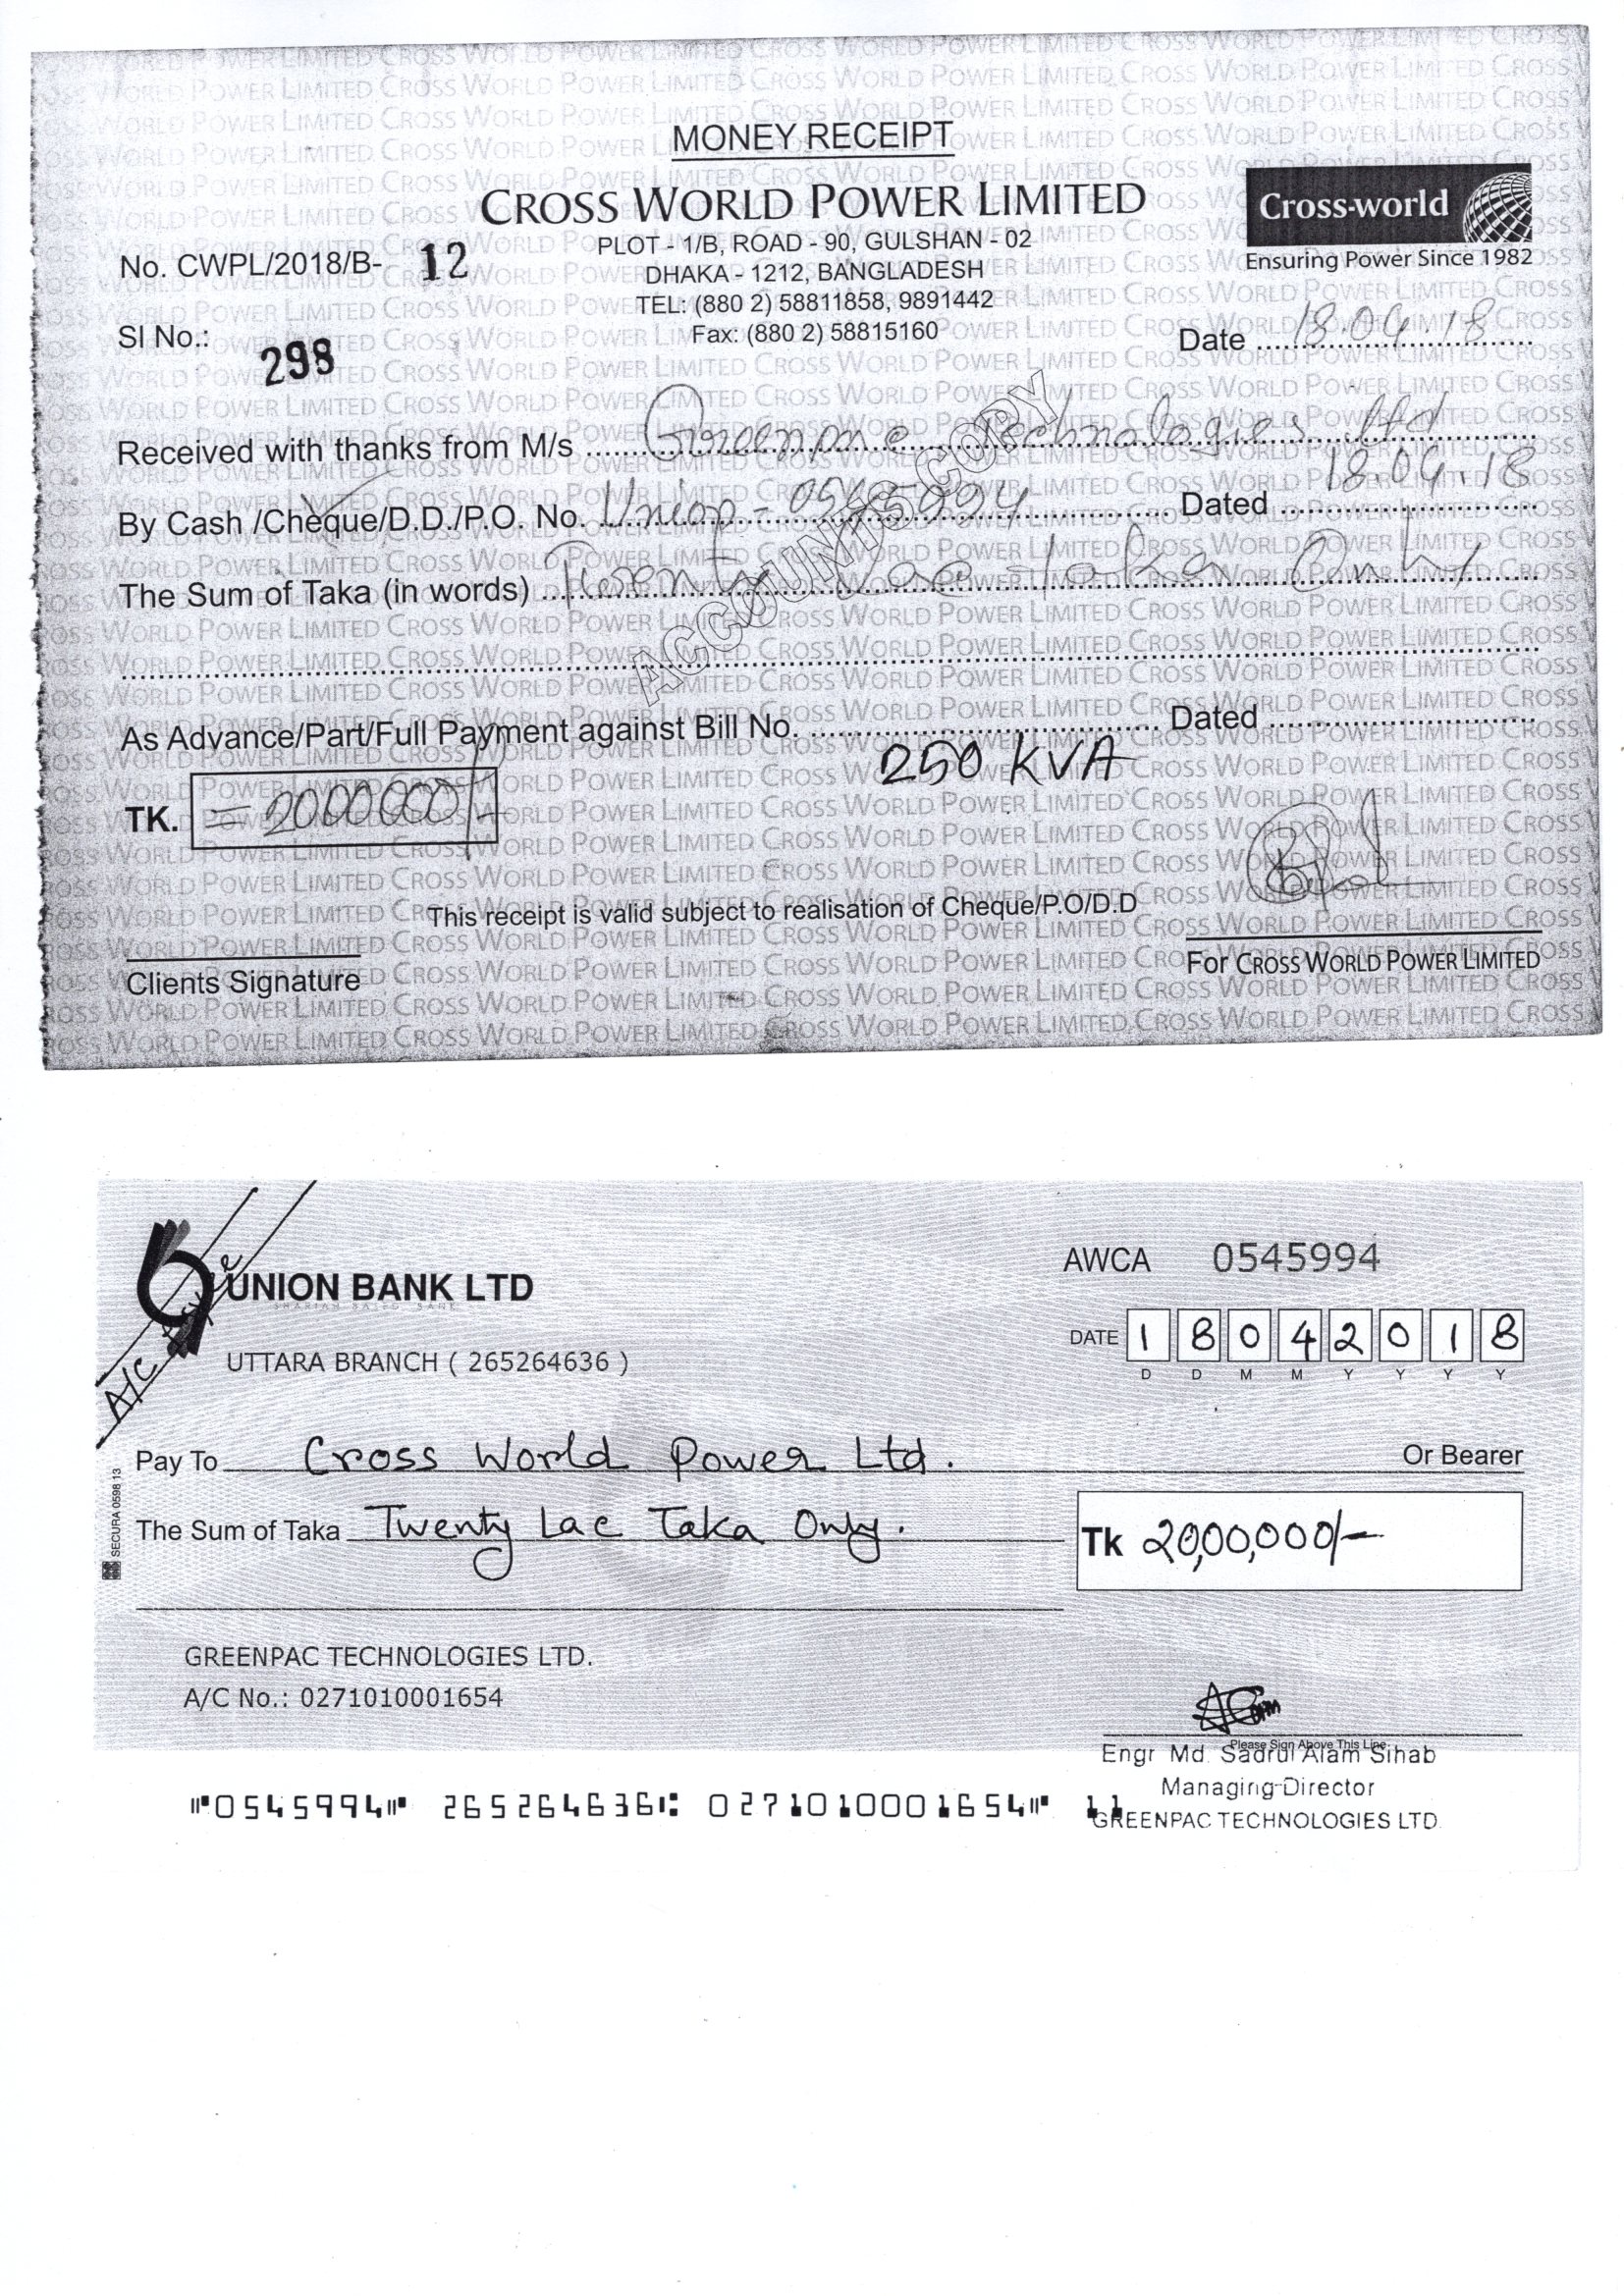 MONEY RECEIPT
CROSS WORLD POWER LIMITED
Cross-world
Ensuring Power Since 1982
PLOT - 1/B, ROAD - 90, GULSHAN - 02
No. CWPL/2018/B- 12
DHAKA - 1212, BANGLADESH
TEL: (880 2) 58811858, 9891442
Fax: (880 2) 58815160
Sl No.: 298
Date 18.04.18
Received with thanks from M/s Technologies Ltd
By Cash /Cheque/D.D./P.O. No. Union - 0545994 Dated 18.04.18
The Sum of Taka (in words) Twenty Lac Taka Only
ACCOUNTS COPY
As Advance/Part/Full Payment against Bill No. Dated
250 KVA
TK. = 2000000/-
This receipt is valid subject to realisation of Cheque/P.O/D.D
Clients Signature
For CROSS WORLD POWER LIMITED
A/C Payee
UNION BANK LTD
SHARIAH BASED BANK
AWCA 0545994
UTTARA BRANCH ( 265264636 )
DATE 1 8 0 4 2 0 1 8
D D M M Y Y Y Y
Pay To Cross World Power Ltd. Or Bearer
The Sum of Taka Twenty Lac Taka Only.
Tk 20,00,000/-
SECURA 0598 13
GREENPAC TECHNOLOGIES LTD.
A/C No.: 0271010001654
Please Sign Above This Line
Engr Md. Sadrul Alam Sihab
Managing Director
GREENPAC TECHNOLOGIES LTD.
⑈0545994⑈ 265264636⑆ 0271010001654⑈ 11